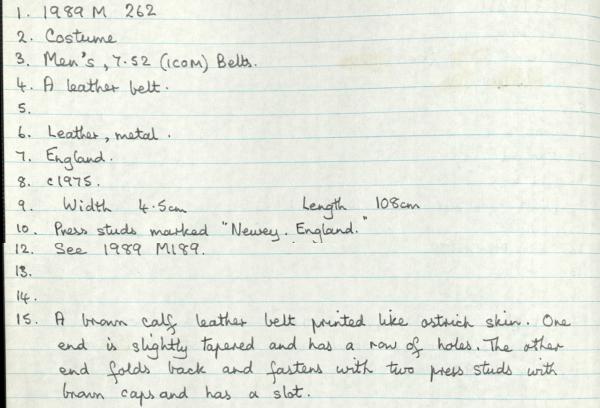 1. 1989 M 262
2. Costume
3. Men's, 7.52 (ICOM) Belts.
4. A leather belt.
5.
6. Leather, metal.
7. England.
8. c1975.
9. Width 4.5cm Length 108cm
10. Press studs marked "Newey. England."
12. See 1989 M189.
13.
14.
15. A brown calf leather belt printed like ostrich skin. One
end is slightly tapered and has a row of holes. The other
end folds back and fastens with two press studs with
brown caps and has a slot.